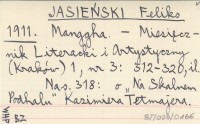 JASIEŃSKI Feliks
1911. Manggha. - Miesięcz-
nik Literacki i Artystyczny
(Kraków) 1, nr 3: 312-320, il.
Nas. 318: o "Na Skalnem
Podhalu" Kazimierza Tetmajera.
BZ